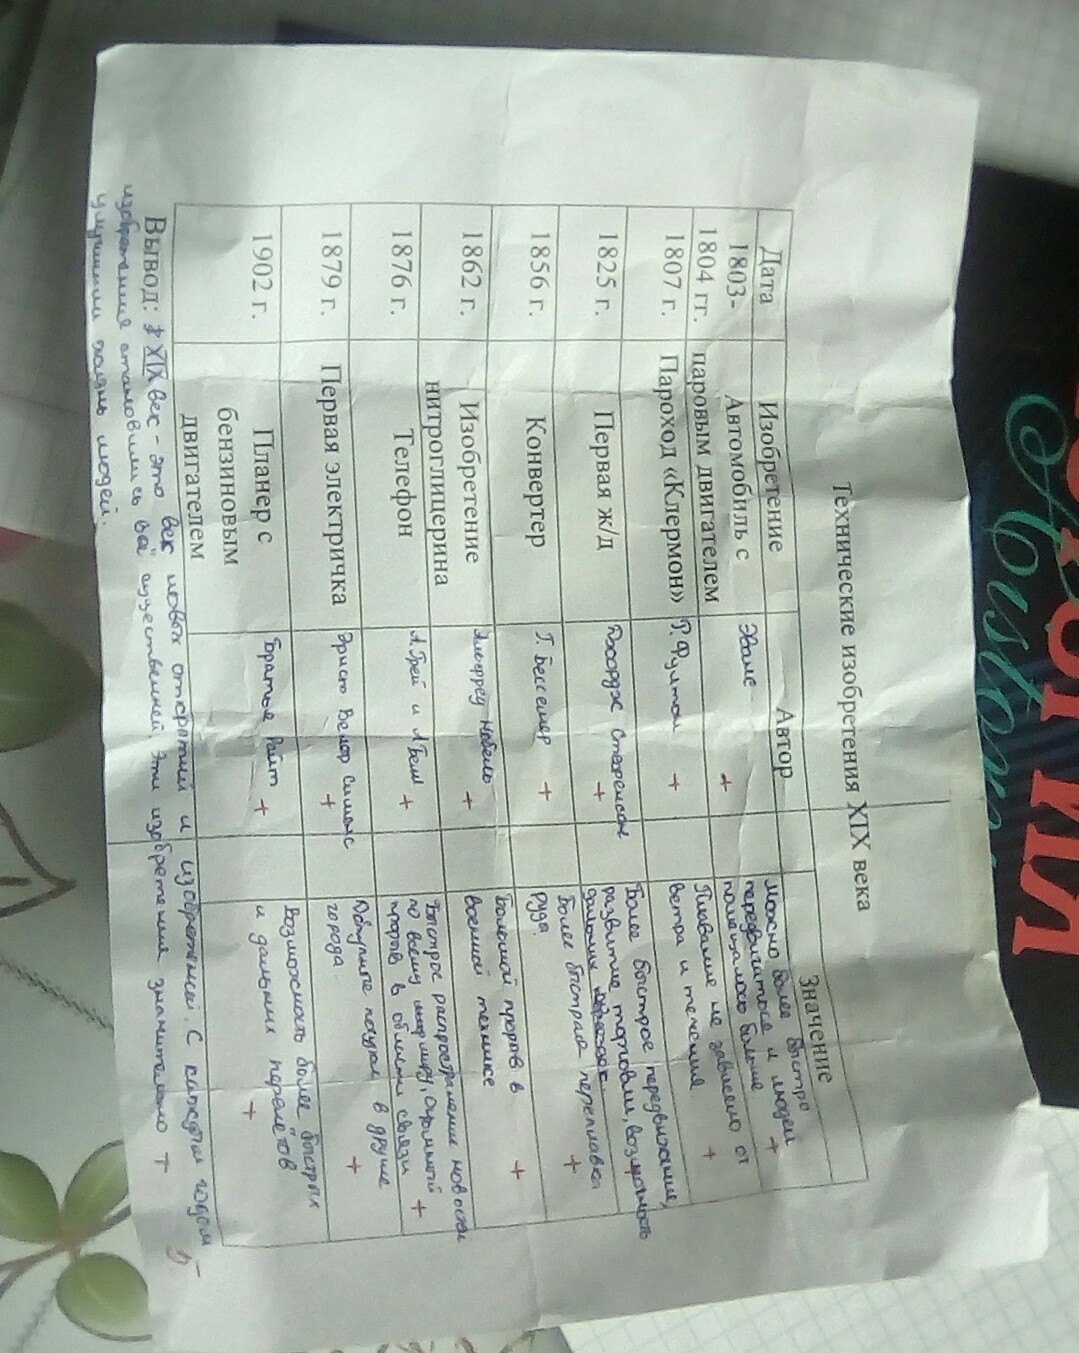 Технические изобретения XIX века
Дата
Изобретение
Автор
Значение
1803-
1804 гг.
Автомобиль с
паровым двигателем
Эванс +
Можно более быстро
передвигаться и людей
помещалось больше +
1807 г.
Пароход «Клермон»
Р. Фултон +
Плавание не зависело от
ветра и течения +
1825 г.
Первая ж/д
Джордж Стефенсон +
Более быстрое передвижение,
развитие торговли, возможность
1856 г.
Конвертер
Г. Бессемер +
Более быстрая переплавка
руды +
1862 г.
Изобретение
нитроглицерина
Альфред Нобель +
Большой прорыв в
военной технике +
1876 г.
Телефон
А. Грей и А Белл +
Быстрое распространение новостей
по всему миру, огромный
прорыв в области связи +
1879 г.
Первая электричка
Эрнст Венер Сименс +
Доступнее поездки в другие
города +
1902 г.
Планер с
бензиновым
двигателем
Братья Райт +
Возможность более быстрых
и дальних перелётов +
Вывод: XIX век - это век новых открытий и изобретений. С каждым годом
изобретения становились всё существенней Эти изобретения значительно +
улучшили жизнь людей.
5-
История
History